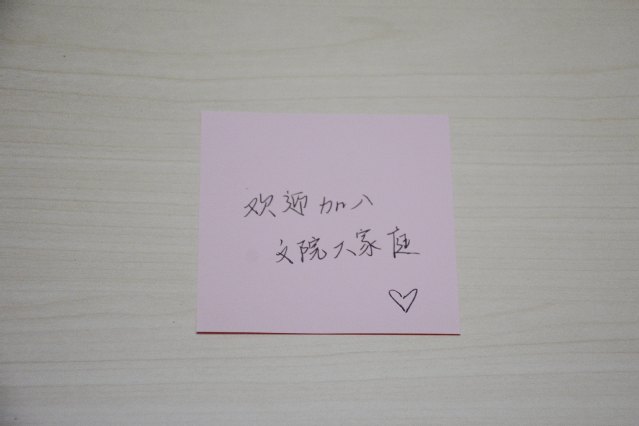 欢迎加入
文院大家庭